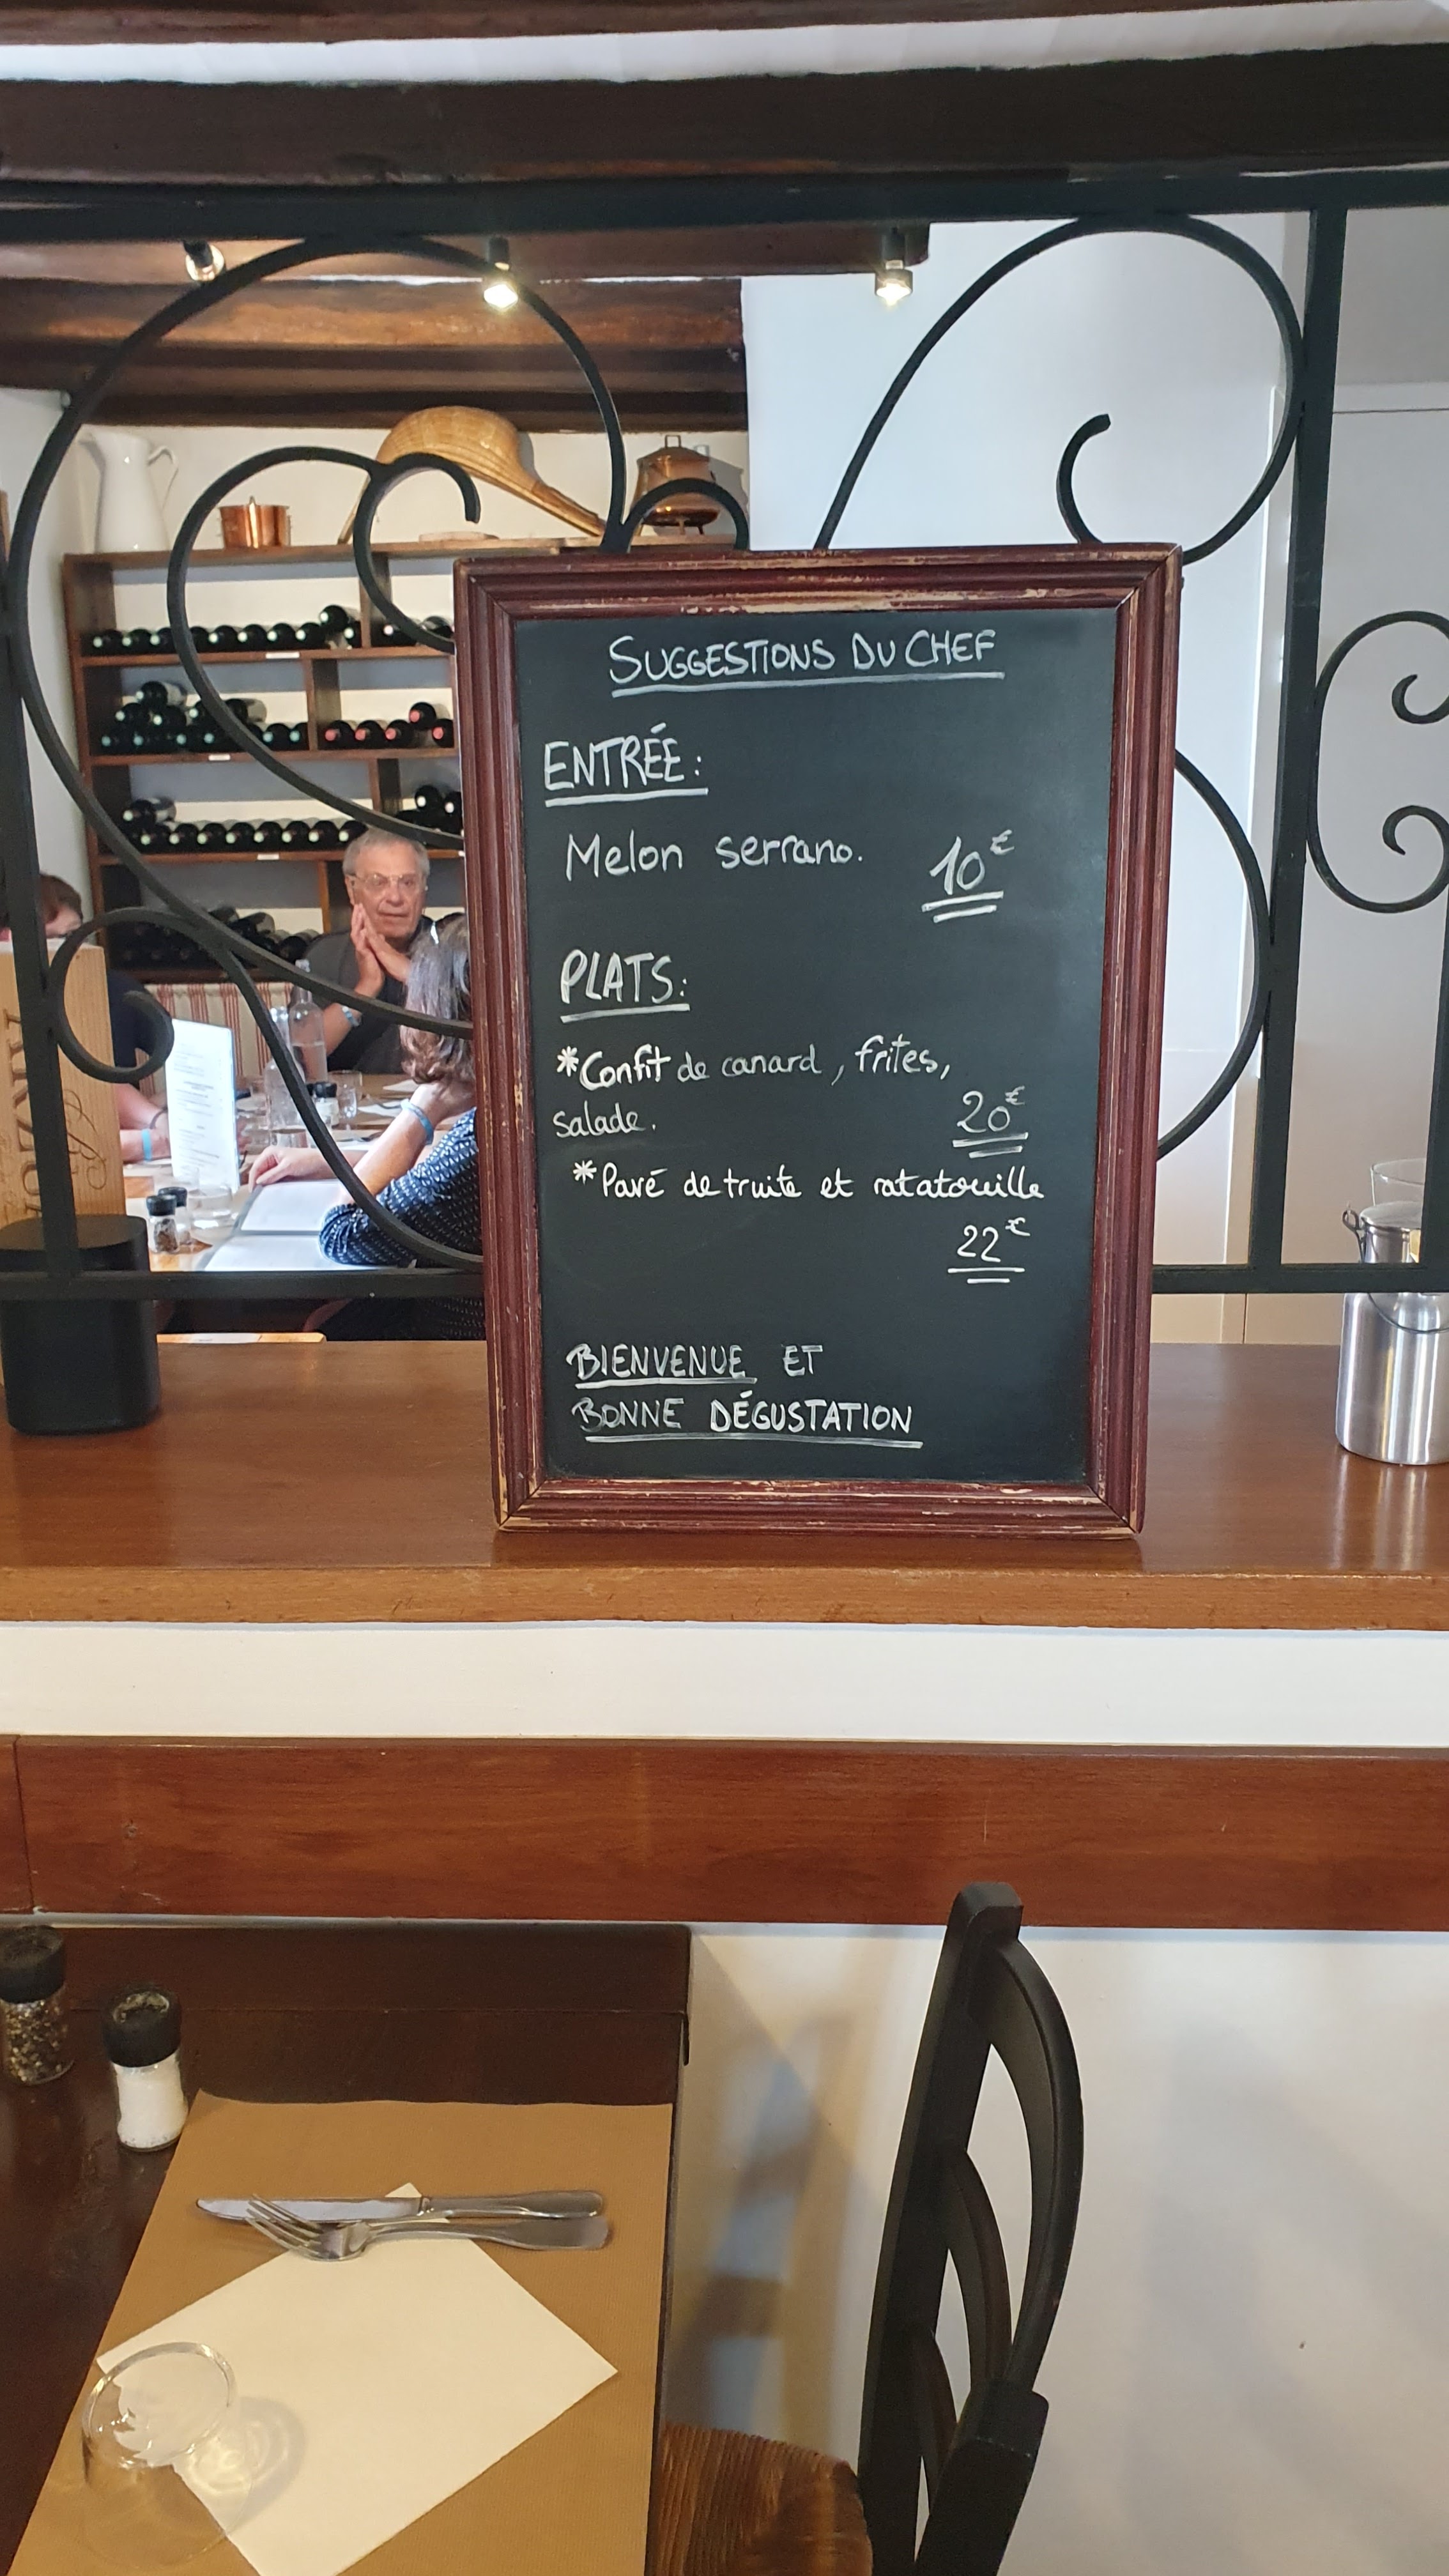 SUGGESTIONS DU CHEF
ENTRÉE:
Melon serrano. 10€
PLATS:
*Confit de canard, frites,
salade. 20€
*Pavé de truite et ratatouille
22€
BIENVENUE ET
BONNE DÉGUSTATION